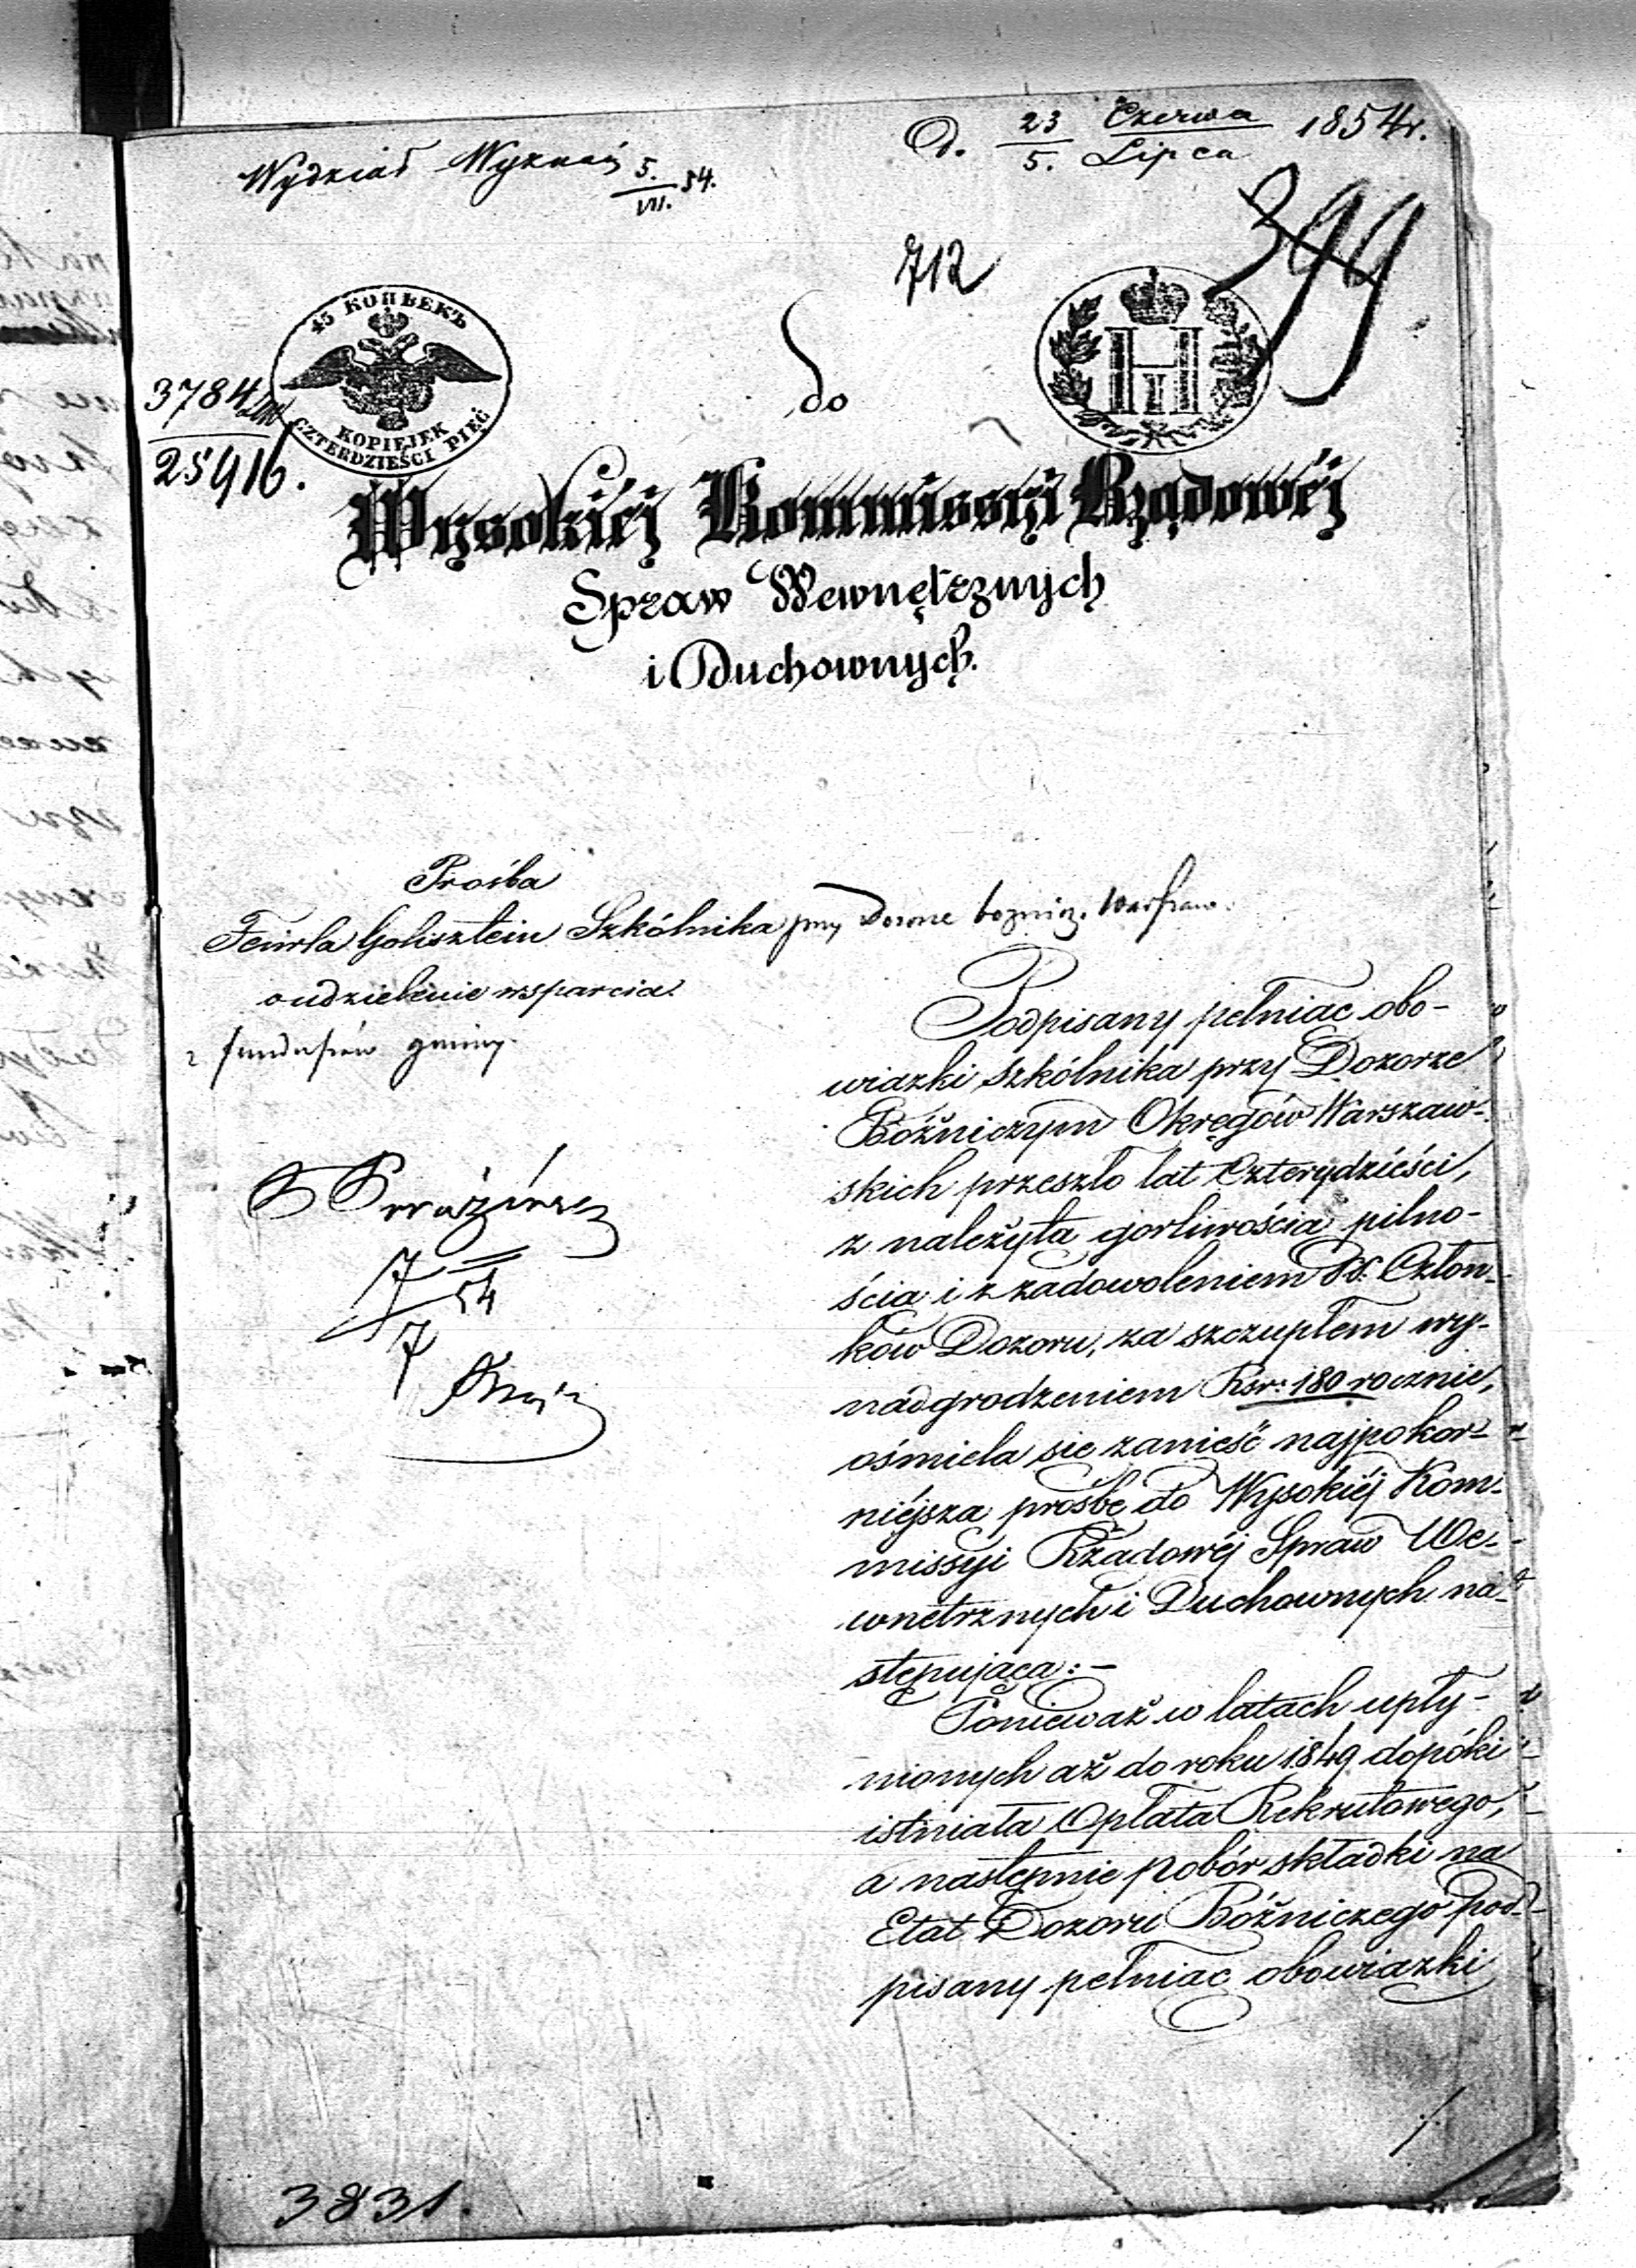 Wydział Wyznań 5./VII. 54.
D. 23/5. Czerwca/Lipca 1854r.
399
712
45 КОПѢЕКЪ
KOPIEJEK
CZTERDZIEŚCI PIĘĆ
3784
25916.
do
Wysokiéj Kommissyi Rządowéj
Spraw Wewnętrznych
i Duchownych.
Prośba
Golisztein Szkólnika przy Dozorze bożnicz. Warszaw.
o udzielenie wsparcia
z funduszów gminy.
7/7 54
Podpisany pełniąc obo-
wiązki szkólnika przy Dozorze
Bóżniczym Okręgów Warszaw-
skich przeszło lat Czterydzieści,
z należytą gorliwością pilno-
ścią i z zadowoleniem Człon-
ków Dozoru, za szczupłem wy-
nadgrodzeniem Rsr: 180 rocznie,
ośmiela się zanieść najpokor-
niéjszą prośbę do Wysokiéj Kom-
missyi Rządowéj Spraw We-
wnętrznych i Duchownych na-
stępującą: —
Ponieważ w latach upły-
nionych aż do roku 1849 dopóki
istniała Opłata Rekrutowego,
a następnie pobór składki na
Etat Dozoru Bóżniczego pod-
pisany pełniąc obowiązki
3831.